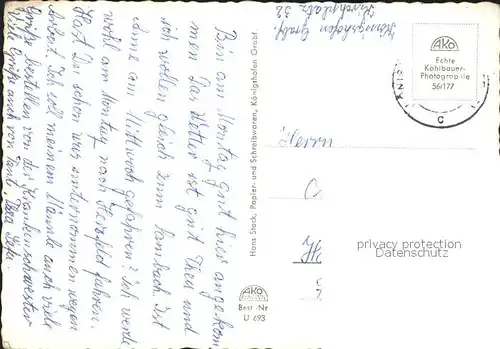 Bin am Montag gut hier angekom
men. Das Wetter ist gut Thea und
ich wollen gleich zum Sambach. Bist
Du am Mittwoch gefahren? Ich werde
wohl am Montag nach Hersfeld fahren.
Hast Du schon was unternommen wegen
Ich soll meinem Männle auch viele
Grüße bestellen von der Krankenschwester
Viele Grüße auch von Tante Thea
Hans Stock, Papier- und Schreibwaren, Königshofen Grabf.
Königshofen Grabf.
Kirchplatz 32
AKO
Echte
Kohlbauer-
Photographie
56/177
C
Herrn
AKO
Best.-Nr
U 693
privacy protection
Datenschutz